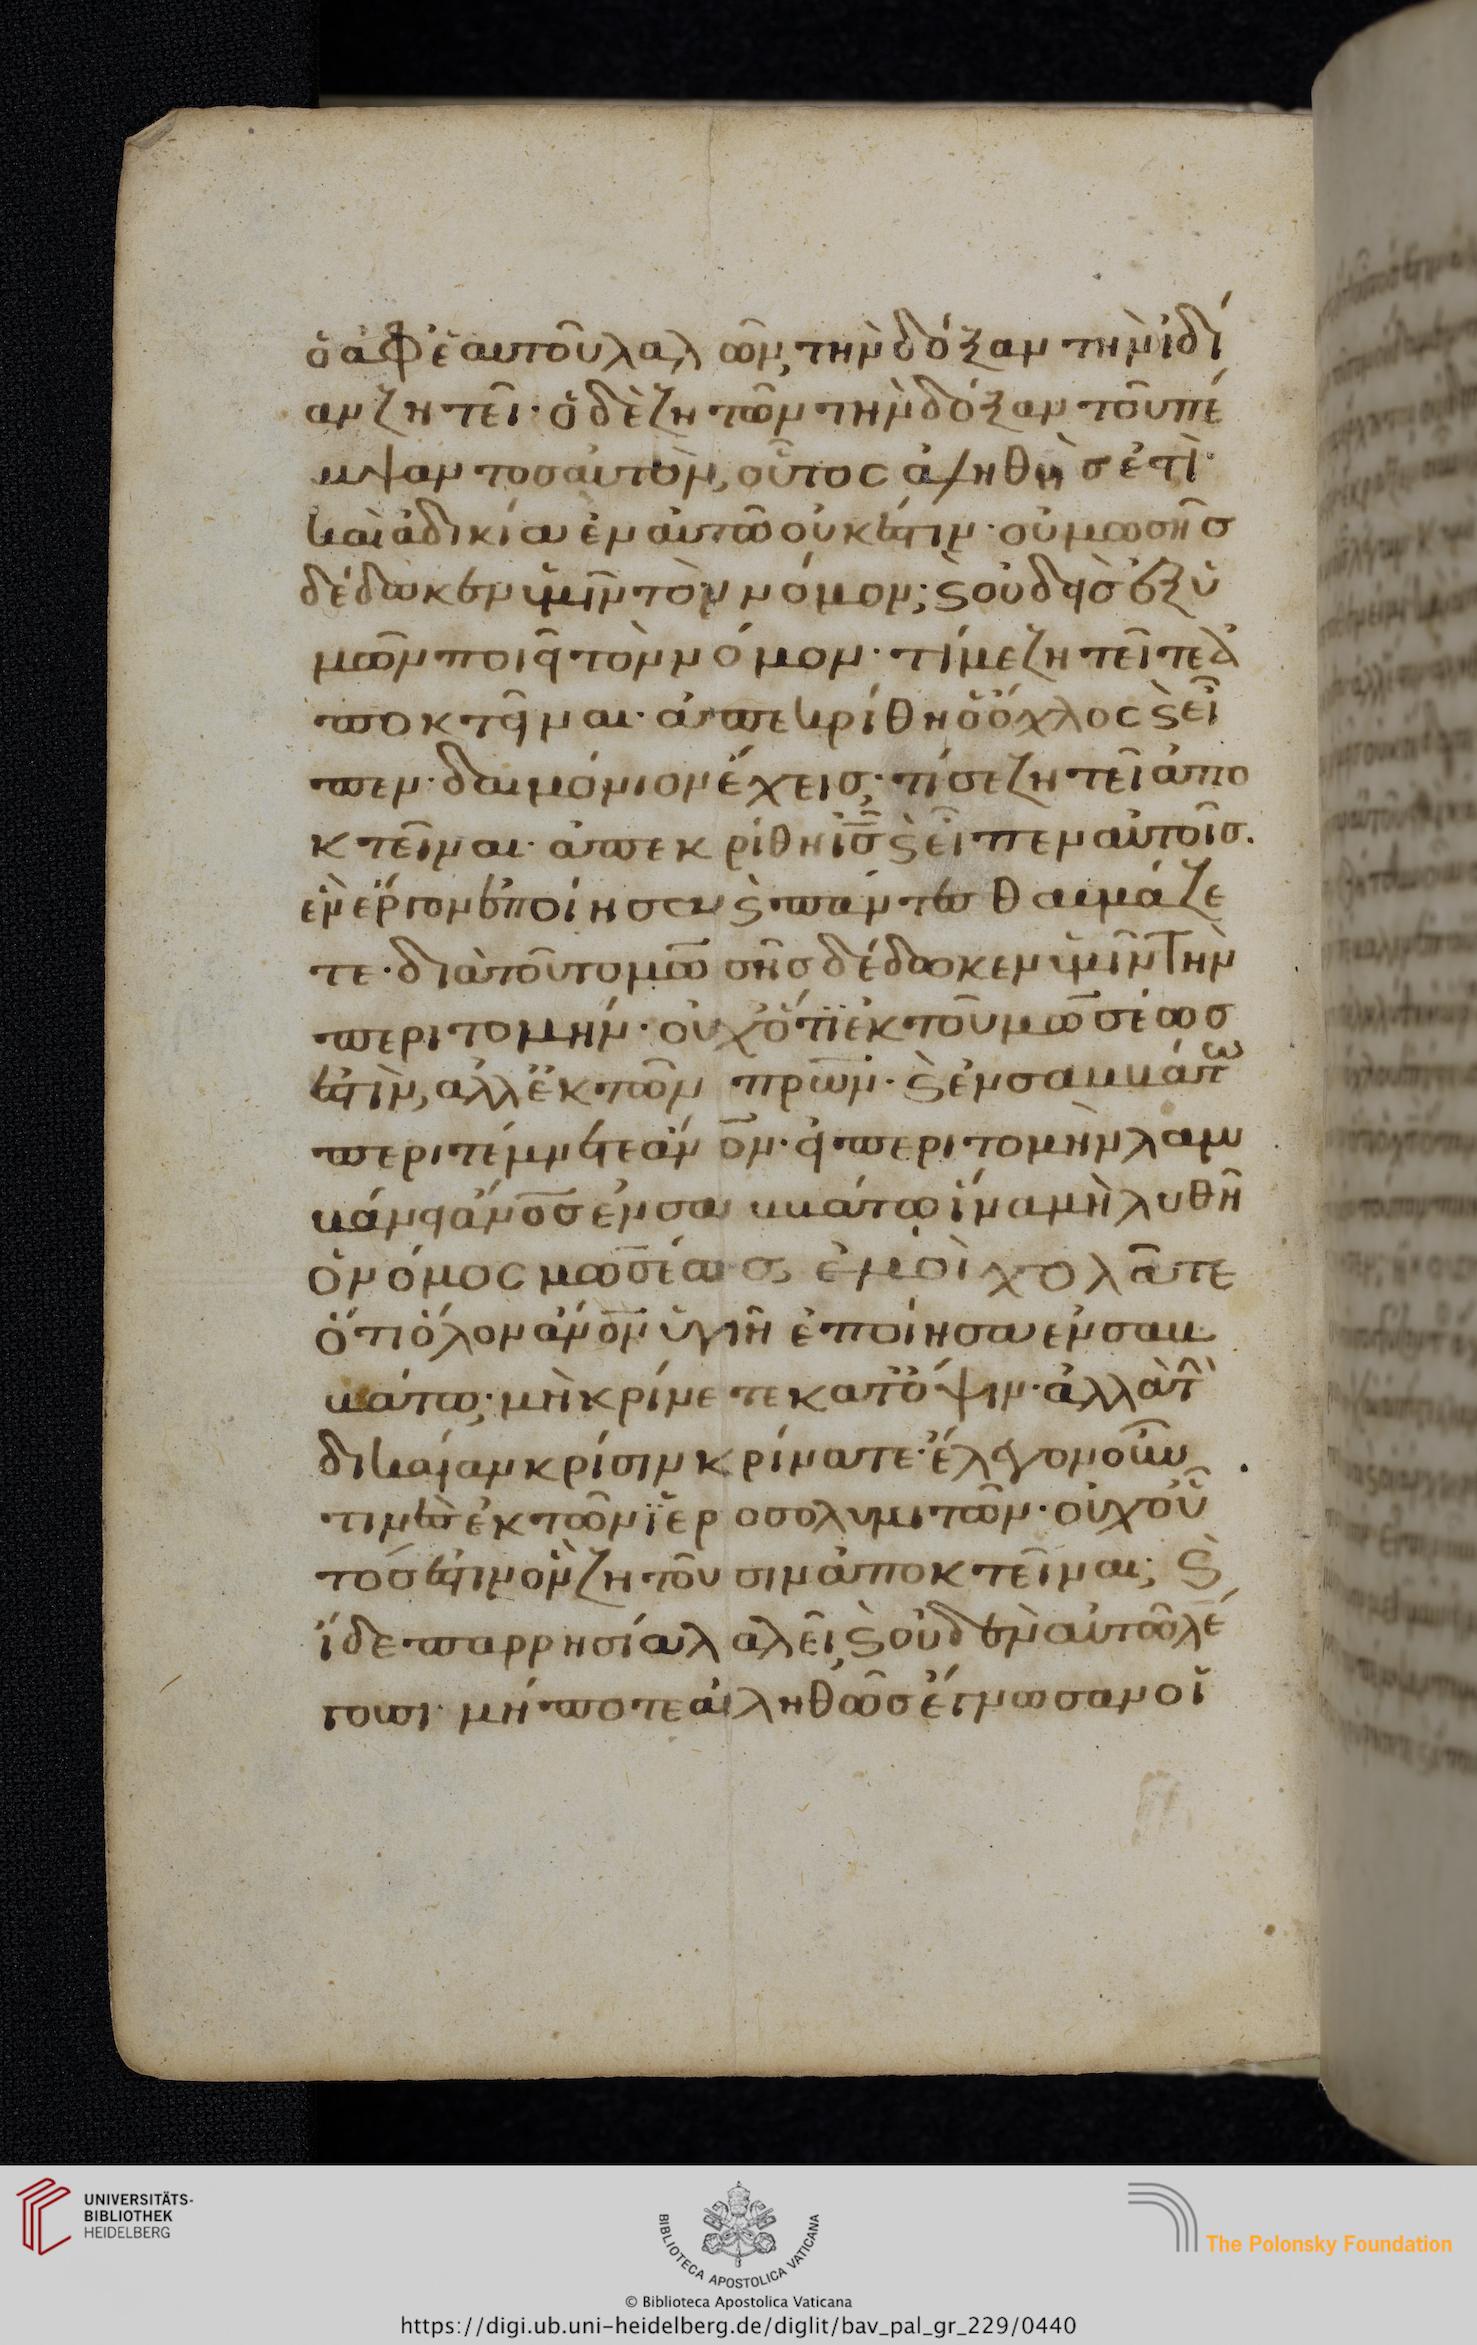 ὁ ἀφ ἑαυτοῦ λαλῶν, τὴν δόξαν τὴν ἰδί
αν ζητεῖ· ὁ δὲ ζητῶν τὴν δόξαν τοῦ πέ
μψαντος αὐτὸν, οὗτος ἀληθὴς ἐστὶ·
καὶ ἀδικία ἐν αὐτῶ οὐκ ἔστιν· οὐ μωσῆς
δέδωκεν ὑμῖν τὸν νόμον; ϗ οὐδεὶς ἐξ ὑ
μῶν ποιεῖ τὸν νόμον· τί με ζητεῖτε ἀ
ποκτεῖναι· ἀπεκρίθη ὁ ὄχλος ϗ εἶ
πεν· δαιμόνιον ἔχεις· τίς σε ζητεῖ ἀπο
κτεῖναι· ἀπεκρίθη ις ϗ εἶπεν αὐτοῖς.
ἓν ἔργον ἐποίησα ϗ πάντες θαυμάζε
τε· διὰ τοῦτο μωσῆς δέδωκεν ὑμῖν τὴν
περιτομήν· οὐχ ὅτι ἐκ τοῦ μωσέως
ἐστὶν, ἀλλ ἐκ τῶν πρων· ϗ ἐν σαββάτω
περιτέμνετε ἄνον· εἰ περιτομὴν λαμ
βάνει ἄνος ἐν σαββάτω ἵνα μὴ λυθῆ
ὁ νόμος μωσέως, ἐμοὶ χολᾶτε
ὅτι ὅλον ἄνον ὑγιῆ ἐποίησα ἐν σαβ
βάτω; μὴ κρίνετε κατ ὄψιν· ἀλλὰ τὴν
δικαίαν κρίσιν κρίνατε· ἔλεγον οὖν
τινὲς ἐκ τῶν ϊεροσολυμιτῶν· οὐχ οὗ
τός ἐστιν ὃν ζητοῦσιν ἀποκτεῖναι; ϗ
ἴδε παρρησία λαλεῖ, ϗ οὐδὲν αὐτῶ λέ
γουσι· μήποτε ἀληθῶς ἔγνωσαν οἱ
UNIVERSITÄTS-
BIBLIOTHEK
HEIDELBERG
BIBLIOTECA APOSTOLICA VATICANA
The Polonsky Foundation
© Biblioteca Apostolica Vaticana
https://digi.ub.uni-heidelberg.de/diglit/bav_pal_gr_229/0440